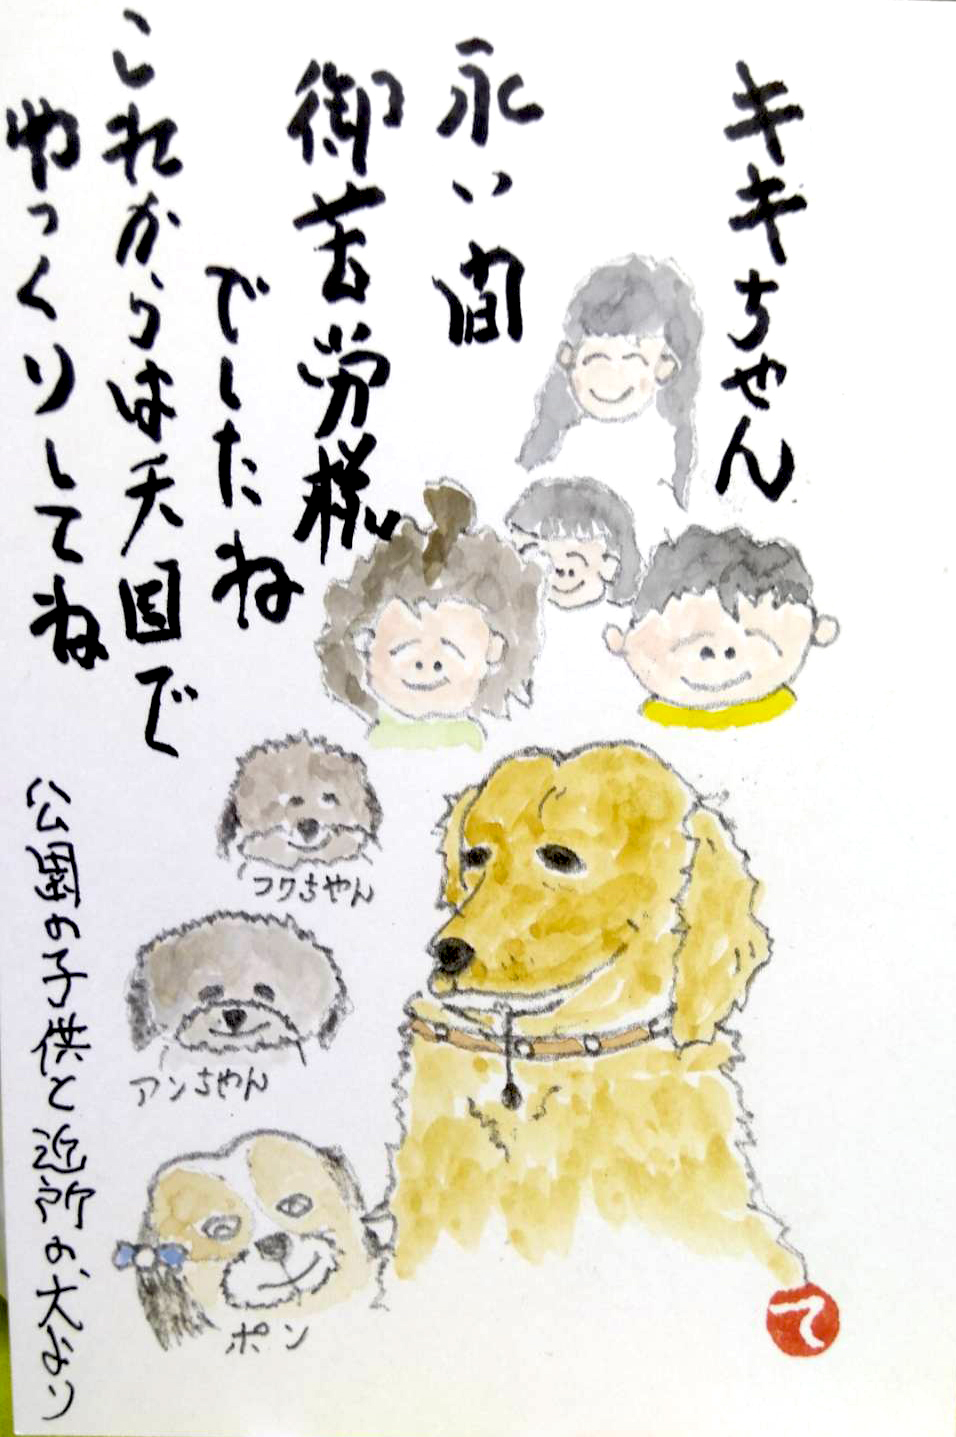 キキちゃん
永い間
御苦労様
でしたね
これからは天国で
ゆっくりしてね
フクちゃん
アンちゃん
ポン
公園の子供と近所の犬より
て